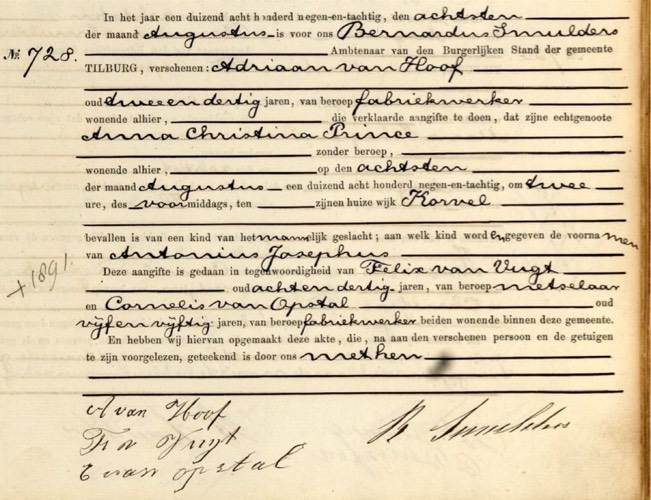 In het jaar een duizend acht honderd negen-en-tachtig, den achtsten
der maand Augustus is voor ons Bernardus Smulders
№ 728. Ambtenaar van den Burgerlijken Stand der gemeente
TILBURG, verschenen: Adriaan van Hoof
oud twee en dertig jaren, van beroep fabriekwerker
wonende alhier, die verklaarde aangifte te doen, dat zijne echtgenoote
Anna Christina Prince
zonder beroep,
wonende alhier, op den achtsten
der maand Augustus een duizend acht honderd negen-en-tachtig, om twee
ure, des voormiddags, ten zijnen huize wijk Korvel
bevallen is van een kind van het mannelijk geslacht; aan welk kind worden gegeven de voornamen
van Antonius Josephus
+1891.
Deze aangifte is gedaan in tegenwoordigheid van Felix van Vugt
oud acht en dertig jaren, van beroep metselaar
en Cornelis van Opstal oud
vijf en vijftig jaren, van beroep fabriekwerker beiden wonende binnen deze gemeente.
En hebben wij hiervan opgemaakt deze akte, die, na aan den verschenen persoon en de getuigen
te zijn voorgelezen, geteekend is door ons met hen
A van Hoof
F v Vugt
C van opstal
B Smulders